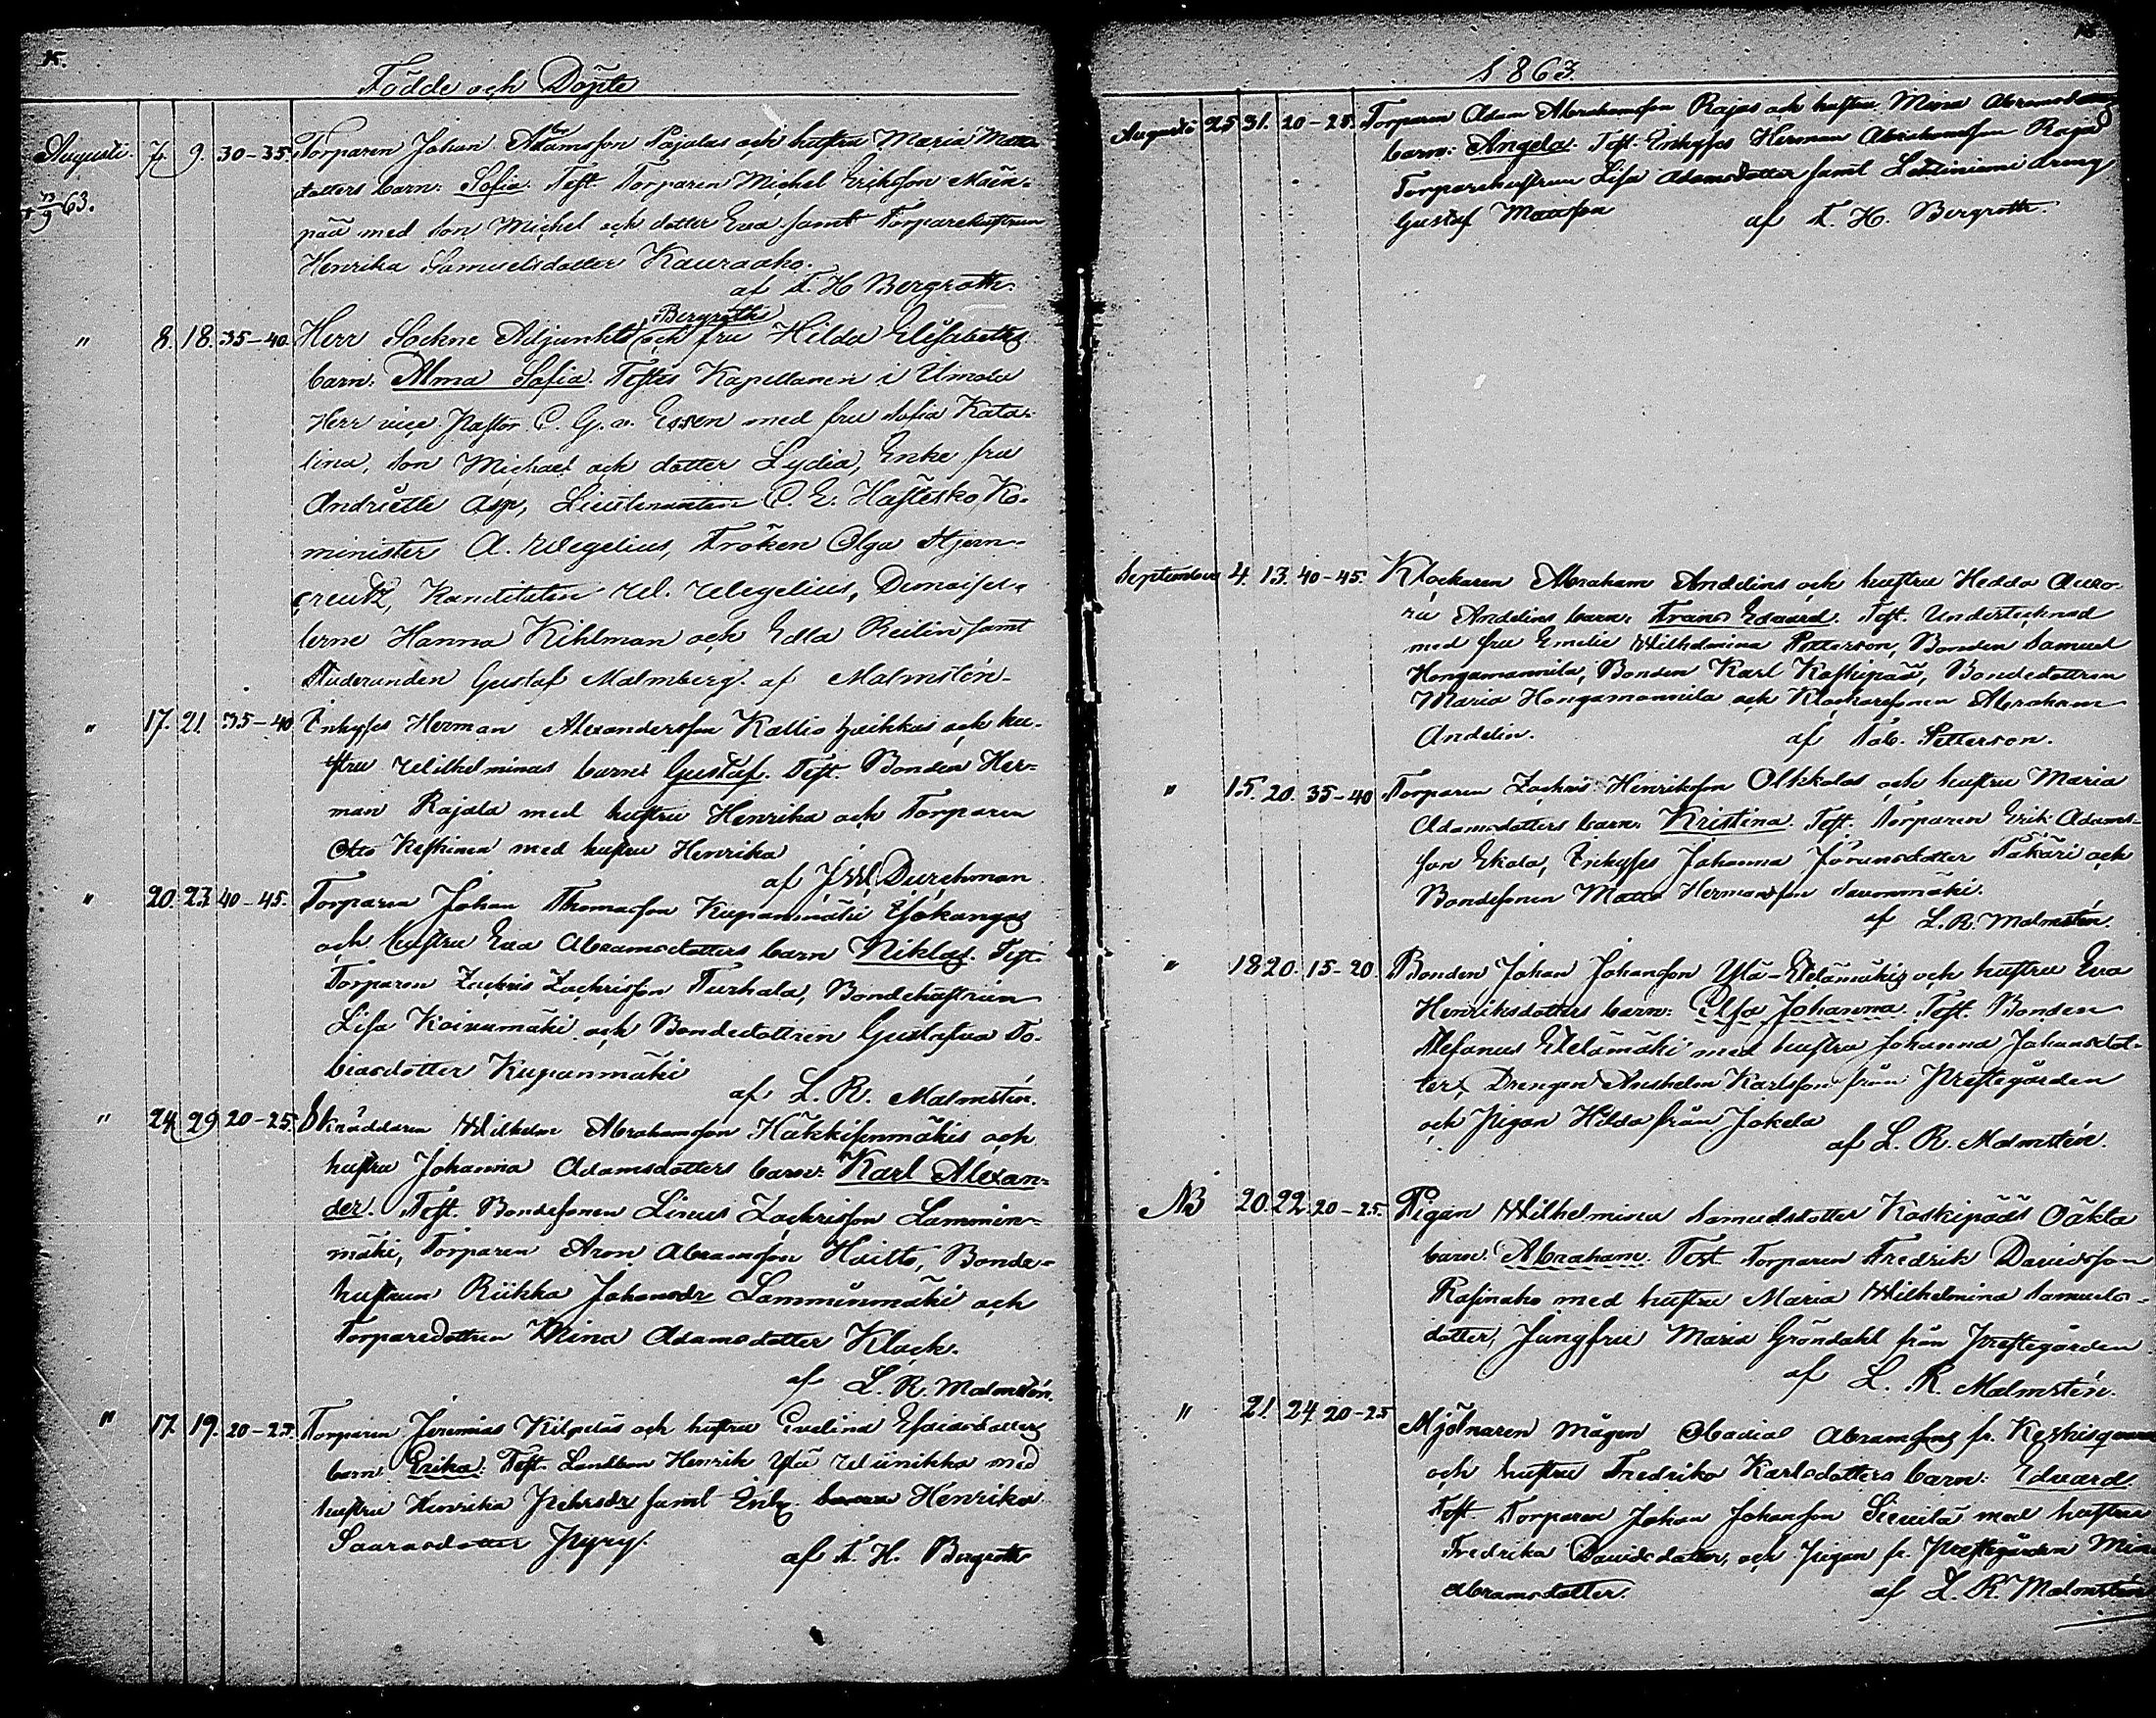 15.
Födde och Döpte
Augusti. 7. 9. 30-35. Torparen Johan Adamsson Pajalas och hustru Maria Matts-
dotters barn: Sofia. Test. Torparen Michel Eriksson Mäen-
† 13/9 63.
pää med son Michel och dotter Eva samt Torparehustrun
Henrika Samuelsdotter Kauraaho.
af F. H. Bergroth.
" 8. 18. 35-40. Herr Sockne Adjunkt Bergroths och fru Hilda Elisabeths
barn: Alma Sofia. Testes Kapellanen i Umola
Herr vice Pastor C. G. v. Essen med fru Sofia Kata-
lina, son Michael och dotter Lydia, Enke fru
Andriette Asp, Lieutenanten C. E. Hästesko Ko-
minister A. Wegelius, Fröken Olga Hjern-
creutz, Kanditaten W. Wegelius, Demoisel-
lerne Hanna Kihlman och Edla Reilin samt
Studeranden Gustaf Malmberg. af Malmstén.
" 17. 21. 35-40 Inhyses Herman Alexandersson Kallio och hu-
stru Wilhelminas barn: Gustaf. Test. Bonden Her-
man Rajala med hustru Henrika och Torparen
Otto Keskinen med hustru Henrika
af Durchman
" 20. 23. 40-45. Torparen Johan Thomasson Kupanmäki
och hustru Eva Abramsdotters barn Niklas. Test.
Torparen Zachris Zachrisson Turhala, Bondehustrun
Lisa Koivumäki och Bondedottren Gustafva To-
biasdotter Kupanmäki
af L. R. Malmstén.
" 24. 29. 20-25. Skräddaren Wilhelm Abrahamsson Häkkisenmäkis och
hustru Johanna Adamsdotters barn: Karl Alexan-
der. Test. Bondesonen Linus Zachrisson Lammin-
mäki, Torparen Aron Abramsson Huitto, Bonde-
hustrun Riikka Johansdr Lamminmäki och
Torparedottren Mina Adamsdotter Klock.
af L. R. Malmstén.
" 17. 19. 20-25. Torparen Jeremias Kilpeläs och hustru Evelina Esaiasdotters
barn: Erika. Test. Landbon Henrik Ylä Wiinikka med
hustru Henrika Pehrsdr samt Enk. Henrika
Saarasdotter Pyry.
af F. H. Bergroth
15
1863.
Augusti 25 31. 20-25. Torparen Adam Abrahamsson Rajas och hustru Mina Abramsd
barn: Angela. Test. Inhyses Herman Abrahamsson Raja
Torparehustrun Lisa Adamsdotter samt Lahtiniemi dreng
Gustaf Mattsson
af F. H. Bergroth.
September 4. 13. 40-45. Klockaren Abraham Andelins och hustru Hedda Auro-
ra Andelins barn: Frans Edvard. Test. Undertecknad
med fru Emelie Wilhelmina Petterson, Bonden Samuel
Hongamannila, Bonden Karl Koskipää, Bondedottren
Maria Hongamannila och Klockaresonen Abraham
Andelin.
af Petterson.
" 15. 20. 35-40 Torparen Zachris Henriksson Olkkolas och hustru Maria
Adamsdotters barn: Kristina. Test. Torparen Erik Adams-
son Ekola, Inhyses Johanna Joransdotter Takäri och
Bondesonen Matts Hermansson Savonmäki.
af L. R. Malmstén.
" 18 20. 15-20. Bonden Johan Johansson Ylä-Etelämäkis och hustru Eva
Henriksdotters barn: Elsa Johanna. Test. Bonden
Stefanus Etelämäki med hustru Johanna Johansdot-
ter, Drengen Anshelm Karlsson från Prestegården
och Pigan Hilda från Jokela
af L. R. Malmstén.
NB 20. 22. 20-25. Pigan Wilhelmina Samuelsdotter Koskipääs Oäkta
barn: Abraham. Test. Torparen Fredrik Davidsson
Rasinaho med hustru Maria Wilhelmina Samuels-
dotter, Jungfru Maria Gröndahl från Prestegården
af L. R. Malmstén.
" 21. 24. 20-25 Mjölnaren Mågen Obadias Abramssons fr.
och hustru Fredrika Karlsdotters barn: Edvard.
Test. Torparen Johan Johansson Sieuilä med hustru
Fredrika Davidsdotter, och Pigan fr. Prestegården Mina
Abramsdotter.
af L. R. Malmstén